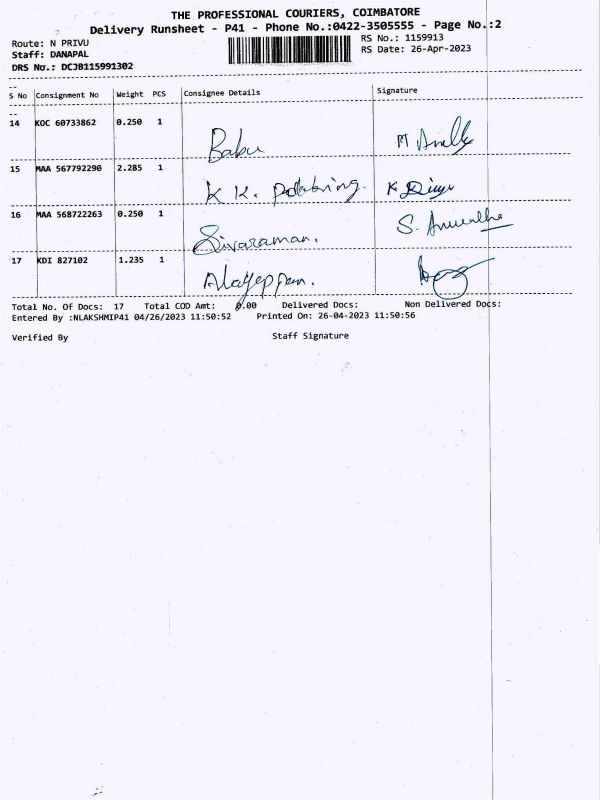 THE PROFESSIONAL COURIERS, COIMBATORE
Delivery Runsheet - P41 - Phone No.:0422-3505555 - Page No.:2
Route: N PRIVU
RS No.: 1159913
Staff: DANAPAL
RS Date: 26-Apr-2023
DRS No.: DCJB115991302
S No Consignment No Weight PCS Consignee Details Signature
14 KOC 60733862 0.250 1 Babu
15 MAA 567792290 2.285 1 K K.
16 MAA 568722263 0.250 1 Sivaraman.
17 KDI 827102 1.235 1 Alageppan.
Total No. Of Docs: 17 Total COD Amt: 0.00 Delivered Docs: Non Delivered Docs:
Entered By :NLAKSHMIP41 04/26/2023 11:50:52 Printed On: 26-04-2023 11:50:56
Verified By Staff Signature